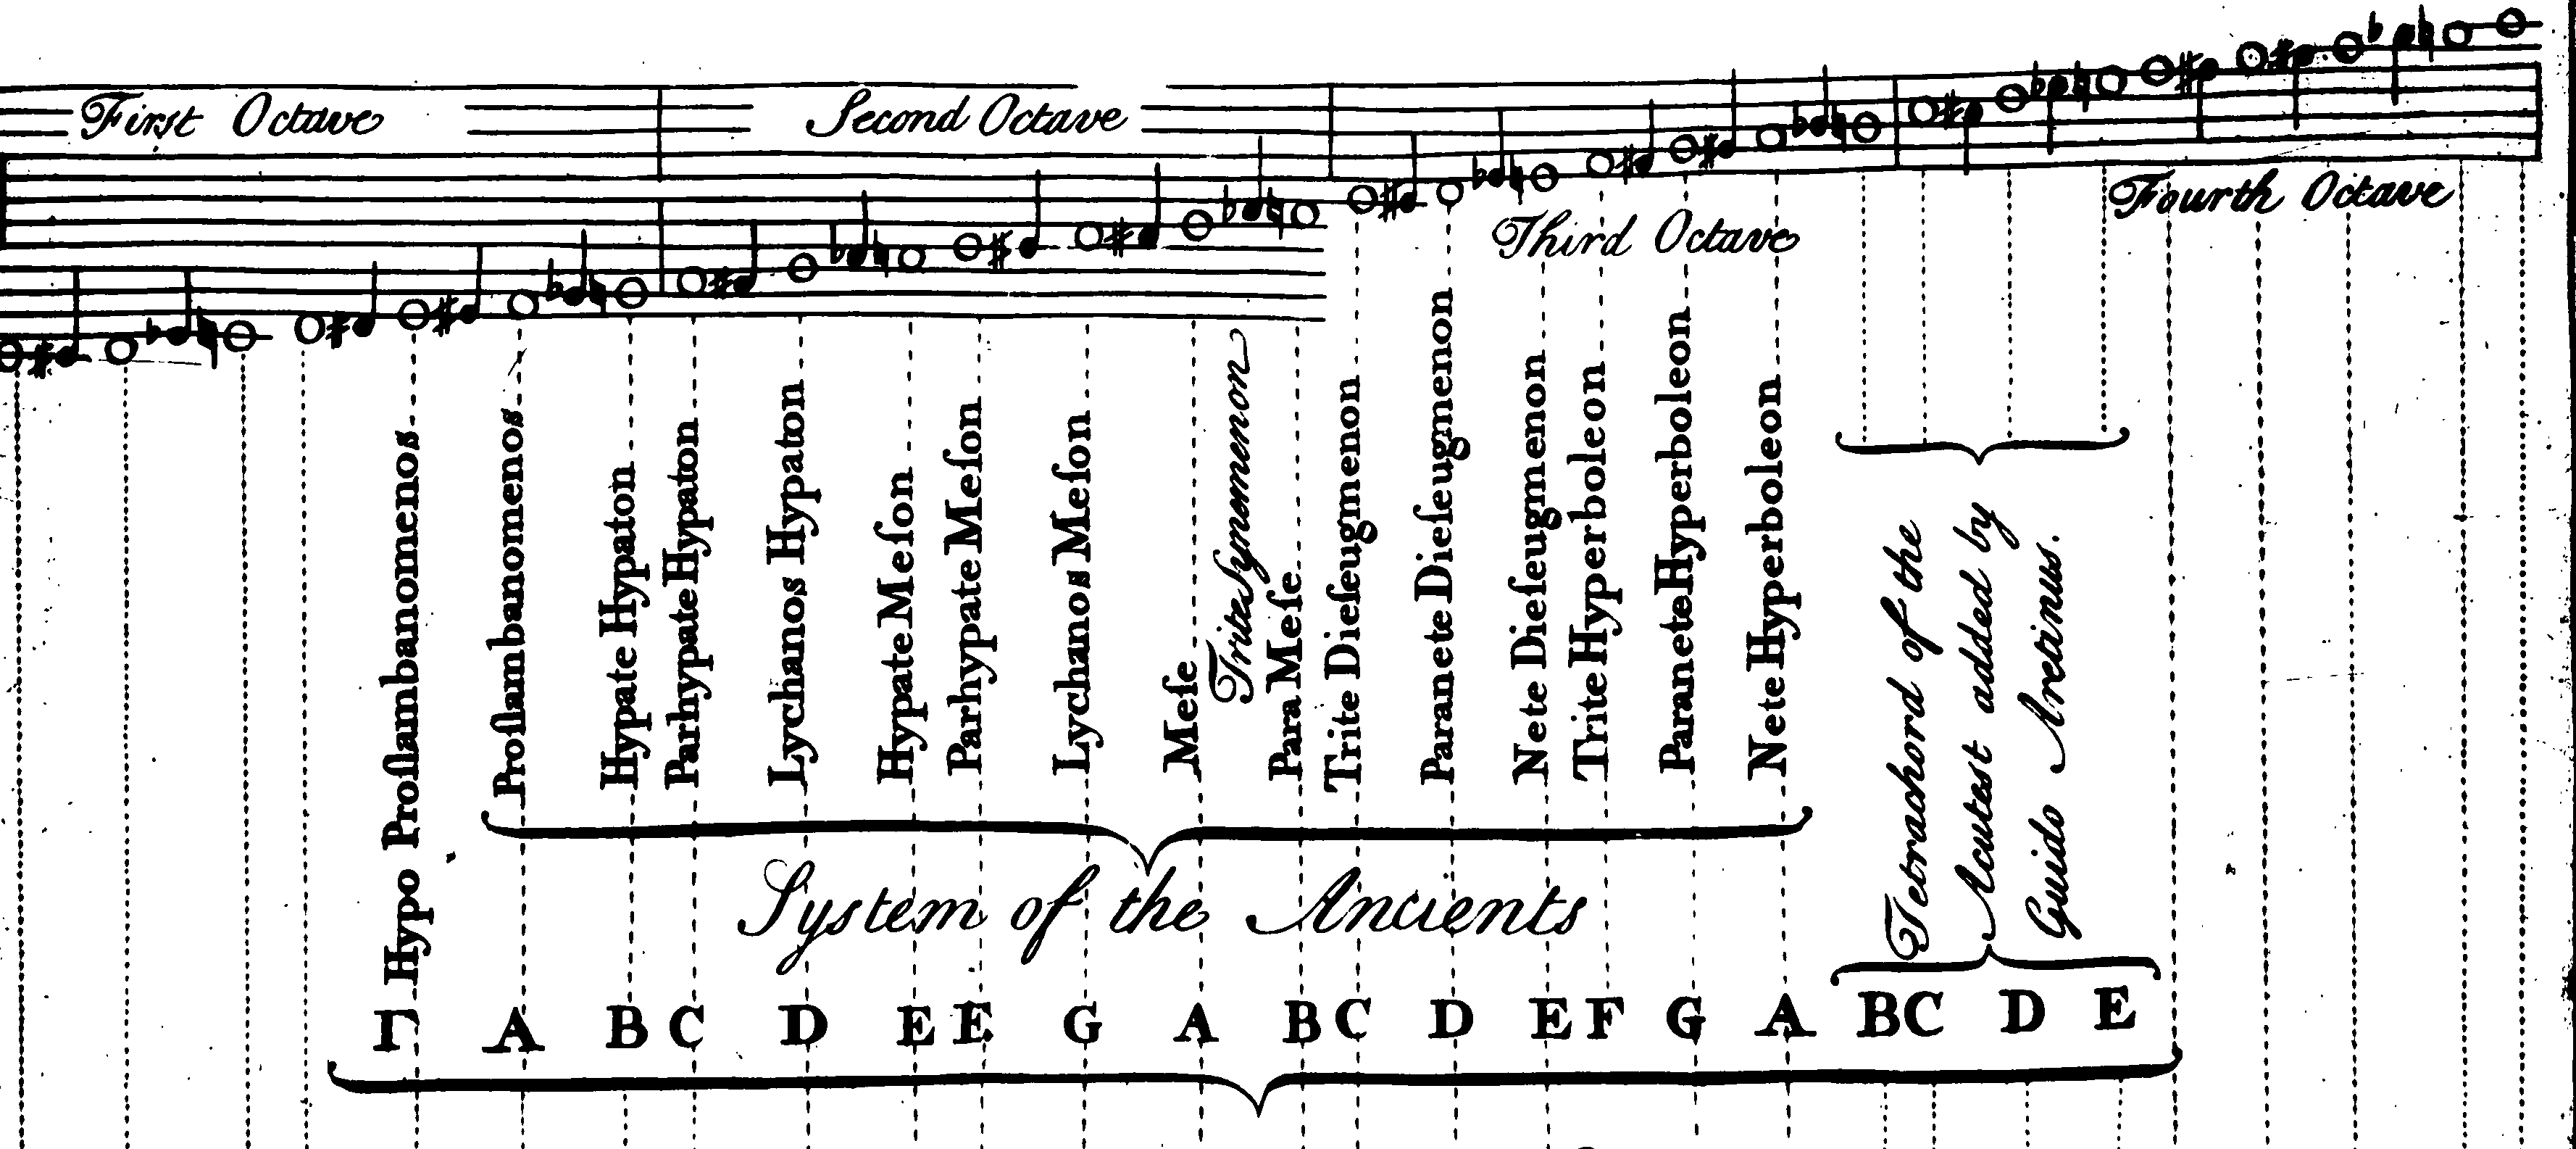 First Octave
Second Octave
Third Octave
Fourth Octave
Hypo Proſlambanomenos
Proſlambanomenos
Hypate Hypaton
Parhypate Hypaton
Lychanos Hypaton
Hypate Meſon
Parhypate Meſon
Lychanos Meſon
Meſe
Trite Synemenon
Para Meſe
Trite Dieſeugmenon
Paranete Dieſeugmenon
Nete Dieſeugmenon
Trite Hyperboleon
Paranete Hyperboleon
Nete Hyperboleon
Tetrachord of the
Acutest added by
Guido Aretinus.
System of the Ancients
Γ A B C D E E G A B C D E F G A B C D E